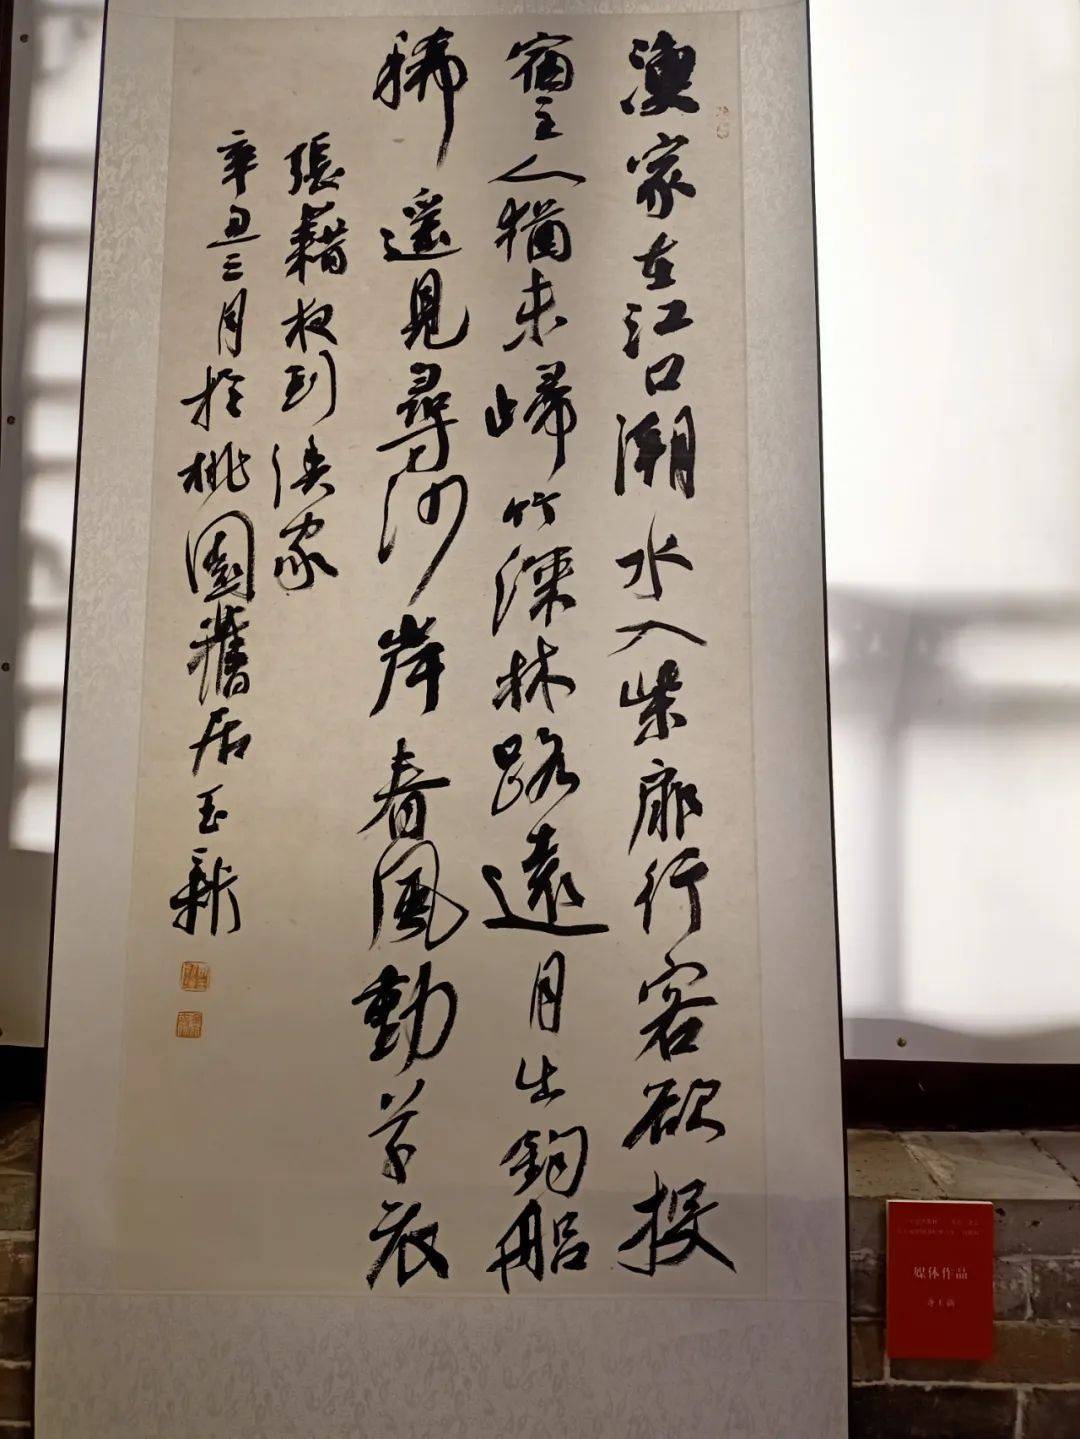 漁家在江口潮水入柴扉行客欲投
宿主人猶未歸竹深林路遠月出釣船
稀遙見尋沙岸春風動草衣
張藉夜到漁家
辛丑三月於桃園舊居玉新
媒体作品